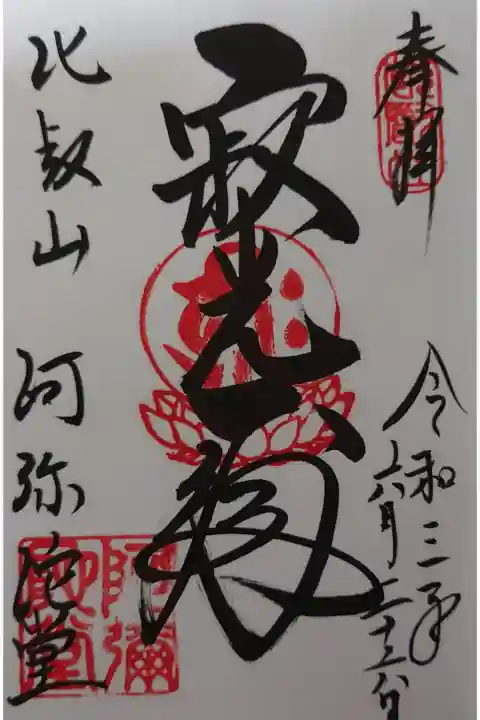 奉拝
令和三年
六月二十三日
寂光殿
比叡山 阿弥陀堂
阿彌
陀堂